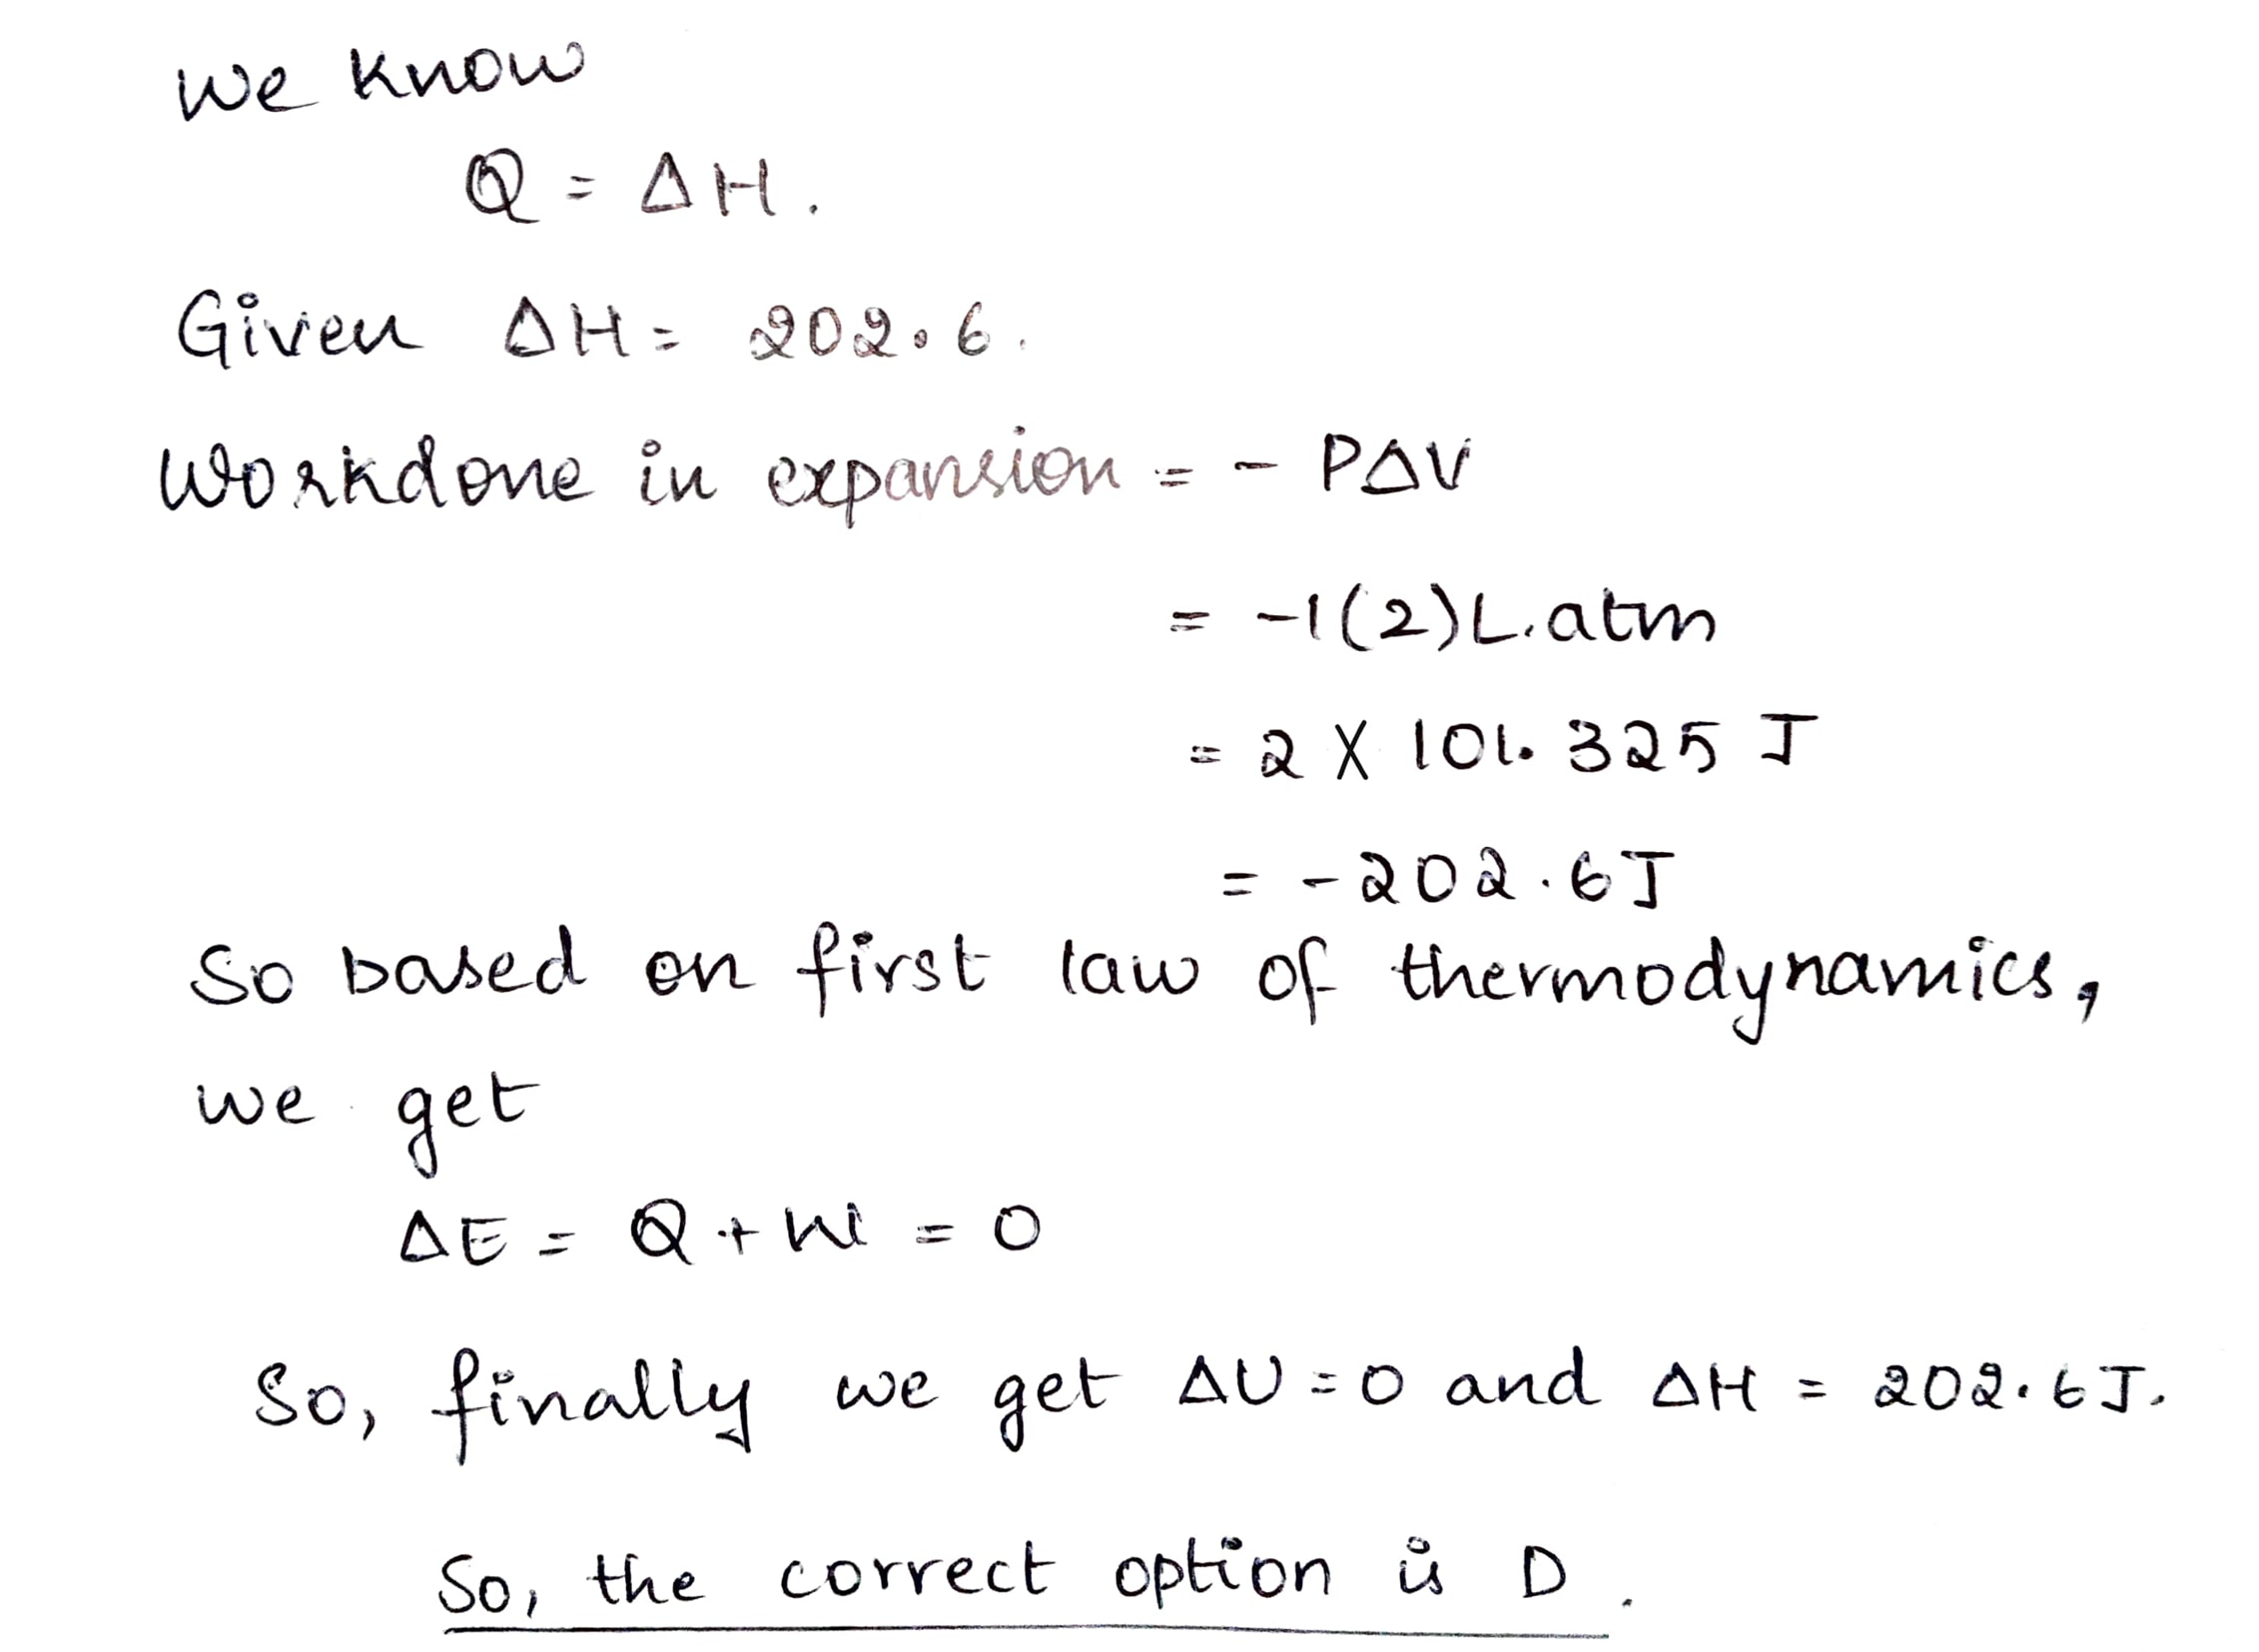 We know
Q = ΔH.
Given ΔH = 202.6.
Workdone in expansion = - PΔV
= -1(2)L.atm
= 2 X 101.325 J
= -202.6J
So based on first law of thermodynamics,
we get
ΔE = Q + W = 0
So, finally we get ΔU = 0 and ΔH = 202.6J.
So, the correct option is D.